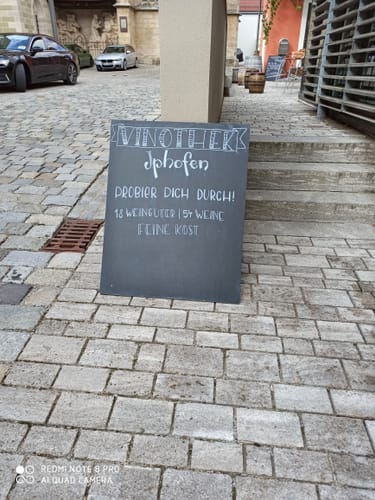 VINOTHEK
Iphofen
PROBIER DICH DURCH!
18 WEINGÜTER | 54 WEINE
FEINE KOST
REDMI NOTE 8 PRO
AI QUAD CAMERA